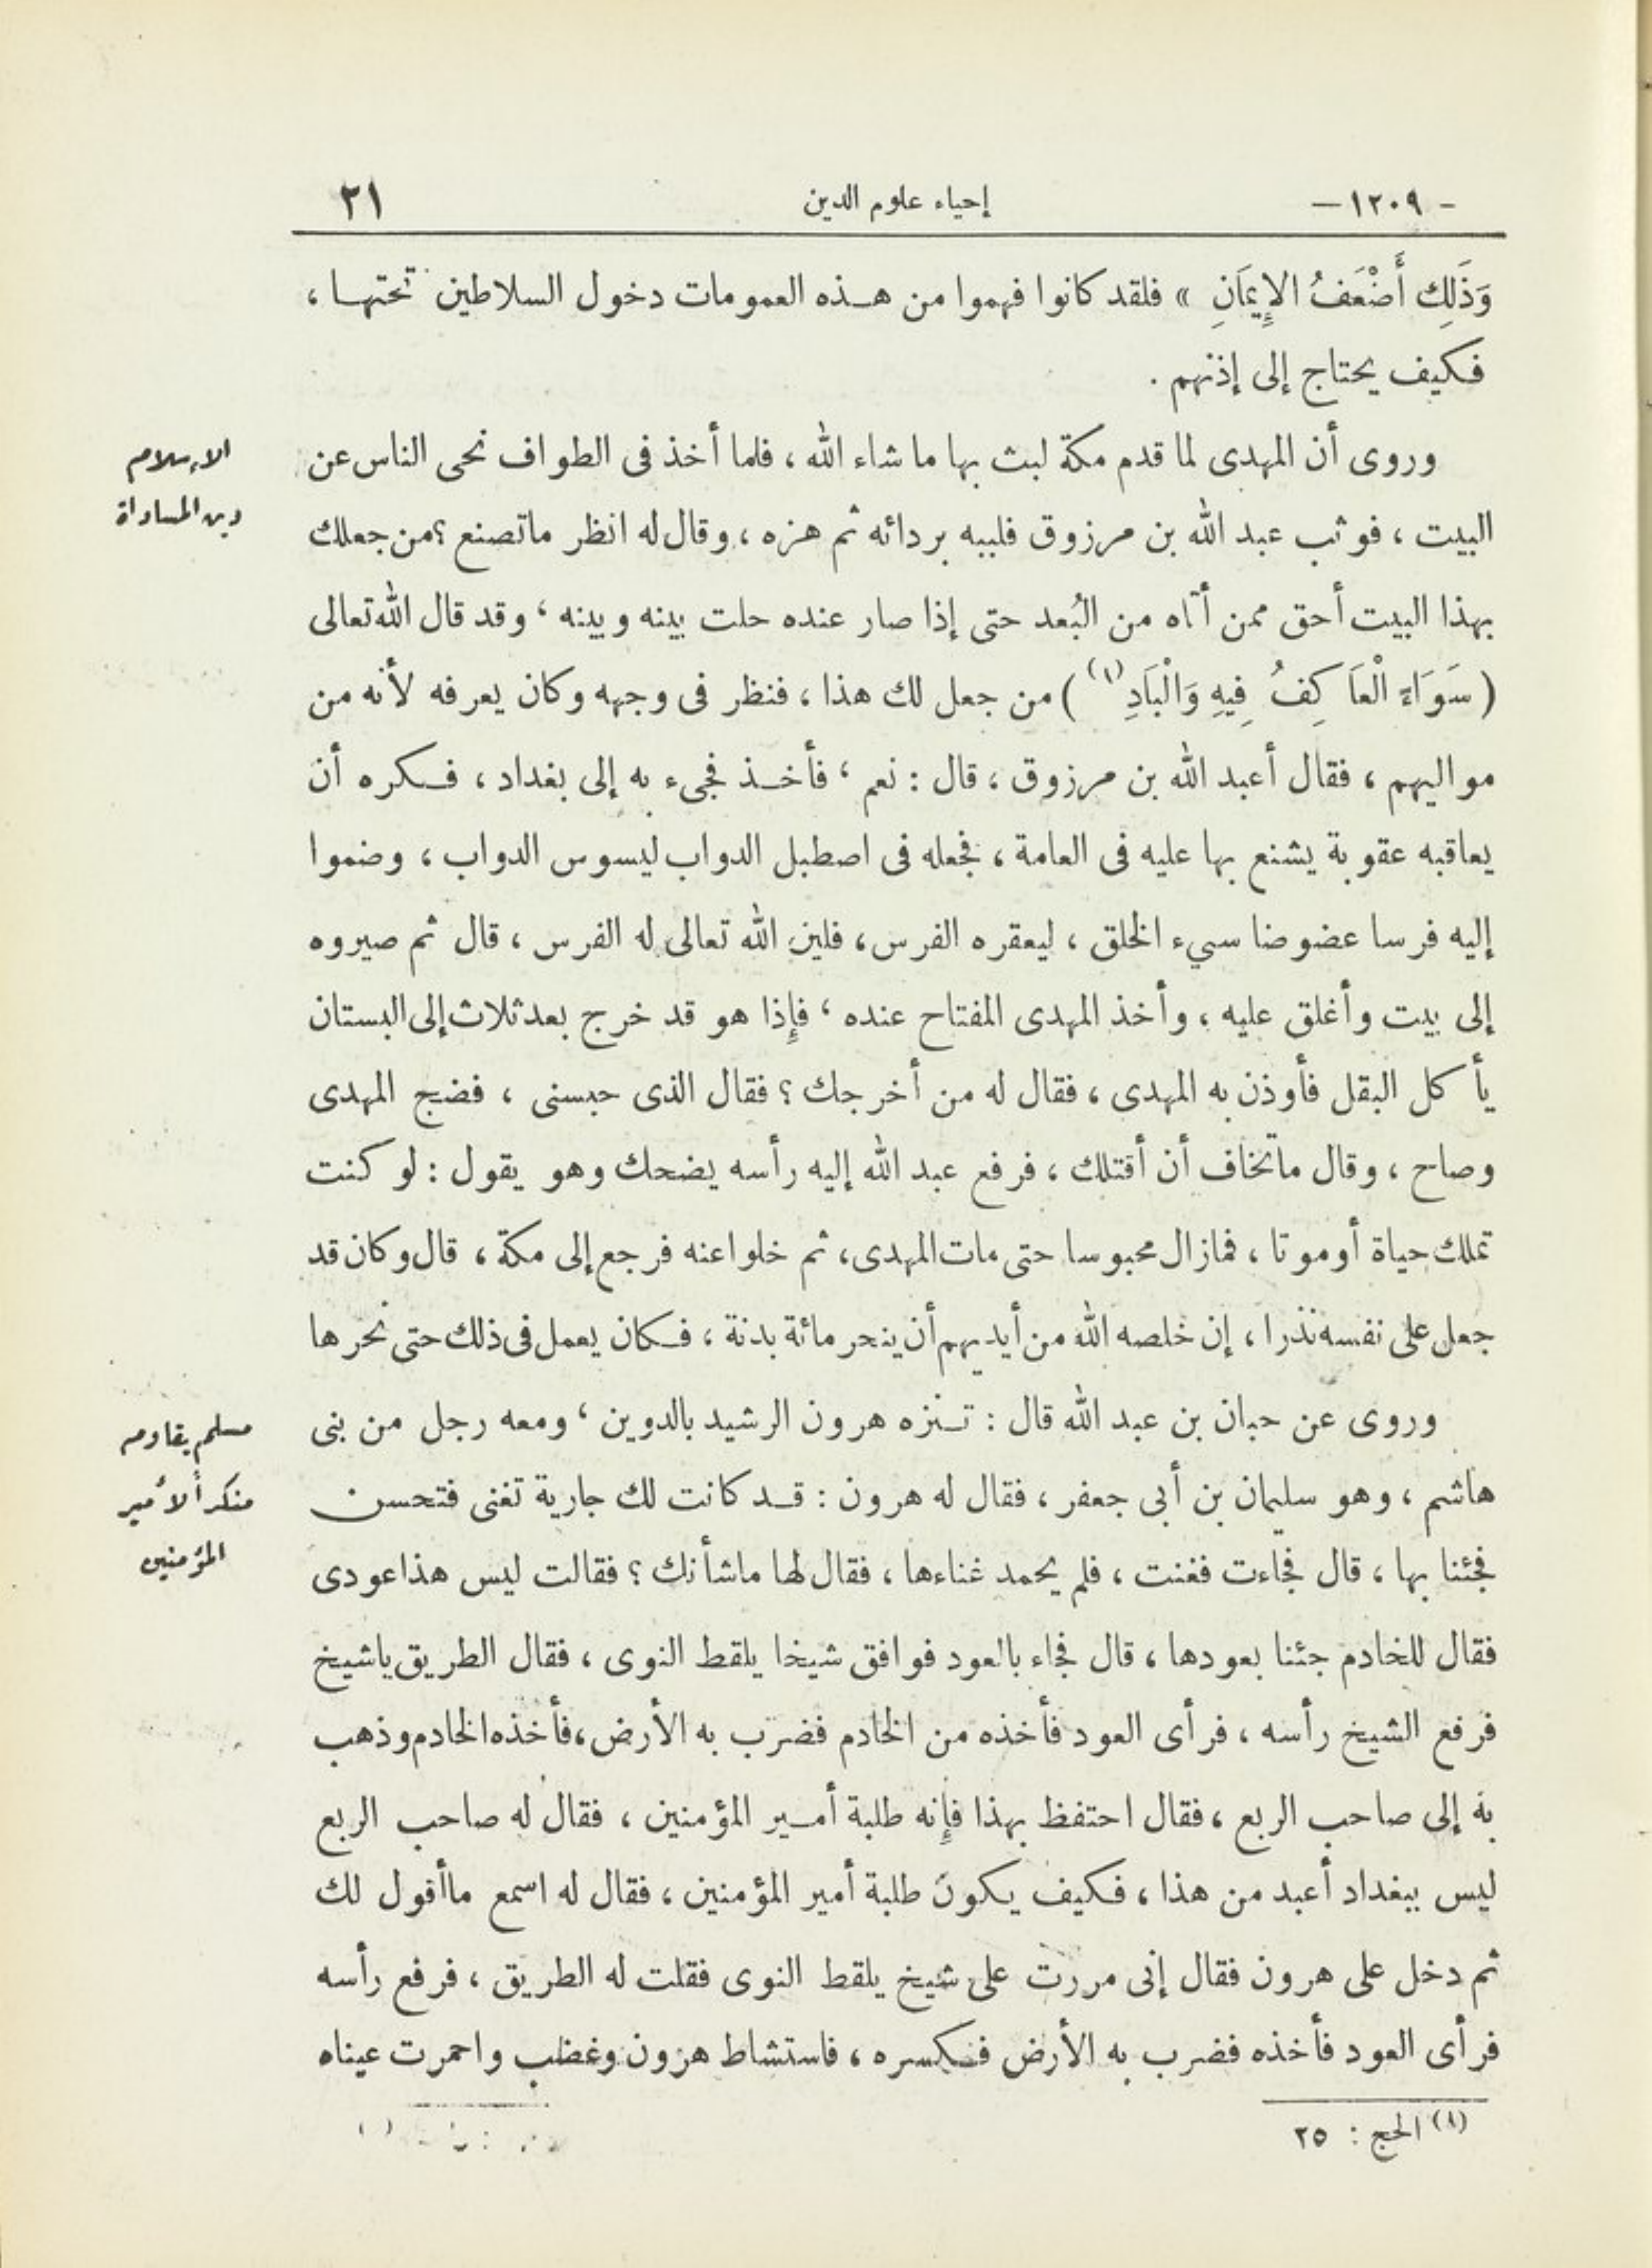 - ١٢٠٩ —
إحياء علوم الدين
٢١
وَذَلِكَ أَضْعَفُ الإِيمَانِ » فلقد كانوا فهموا من هـذه العمومات دخول السلاطين تحتهـا ،
فكيف يحتاج إلى إذنهم .
وروى أن المهدى لما قدم مكة لبث بها ما شاء الله ، فلما أخذ فى الطواف نحى الناس عن
البيت ، فوثب عبد الله بن مرزوق فلببه بردائه ثم هزه ، وقال له انظر ماتصنع ؟ من جعلك
بهذا البيت أحق ممن أتاه من البُعد حتى إذا صار عنده حلت بينه وبينه ، وقد قال الله تعالى
( سَوَاءً الْعَاكِفُ فِيهِ وَالْبَادِ (١) ) من جعل لك هذا ، فنظر فى وجهه وكان يعرفه لأنه من
مواليهم ، فقال أعبد الله بن مرزوق ، قال : نعم ، فأخـذ فجىء به إلى بغداد ، فـكره أن
يعاقبه عقوبة يشنع بها عليه فى العامة ، فجعله فى اصطبل الدواب ليسوس الدواب ، وضموا
إليه فرسا عضوضا سيء الخلق ، ليعقره الفرس ، فلين الله تعالى له الفرس ، قال ثم صيروه
إلى بيت وأغلق عليه ، وأخذ المهدى المفتاح عنده ، فإِذا هو قد خرج بعد ثلاث إلى البستان
يأكل البقل فأوذن به المهدى ، فقال له من أخرجك ؟ فقال الذى حبسنى ، فضج المهدى
وصاح ، وقال ماتخاف أن أقتلك ، فرفع عبد الله إليه رأسه يضحك وهو يقول : لو كنت
تملك حياة أوموتا ، فمازال محبوسا حتى مات المهدى ، ثم خلوا عنه فرجع إلى مكة ، قال وكان قد
جعل على نفسه نذرا ، إن خلصه الله من أيديهم أن ينحر مائة بدنة ، فـكان يعمل فى ذلك حتى نحرها
وروى عن حبان بن عبد الله قال : تـنزه هرون الرشيد بالدوين ، ومعه رجل من بنى
هاشم ، وهو سليمان بن أبى جعفر ، فقال له هرون : قـد كانت لك جارية تغنى فتحسن
فجئنا بها ، قال فجاءت فغنت ، فلم يحمد غناءها ، فقال لها ماشأنك ؟ فقالت ليس هذا عودى
فقال للخادم جئنا بعودها ، قال فجاء بالعود فوافق شيخا يلقط النوى ، فقال الطريق ياشيخ
فرفع الشيخ رأسه ، فرأى العود فأخذه من الخادم فضرب به الأرض ، فأخذه الخادم وذهب
به إلى صاحب الربع ، فقال احتفظ بهذا فإِنه طلبة أمـير المؤمنين ، فقال له صاحب الربع
ليس ببغداد أعبد من هذا ، فـكيف يـكون طلبة أمير المؤمنين ، فقال له اسمع ماأقول لك
ثم دخل على هرون فقال إنى مررت على شيخ يلقط النوى فقلت له الطريق ، فرفع رأسه
فرأى العود فأخذه فضرب به الأرض فـكسره ، فاستشاط هرون وغضب واحمرت عيناه
(١) الحج : ٢٥
الإسلام
دين المساواة
مسلم يقاوم
منكراً لأمير
المؤمنين